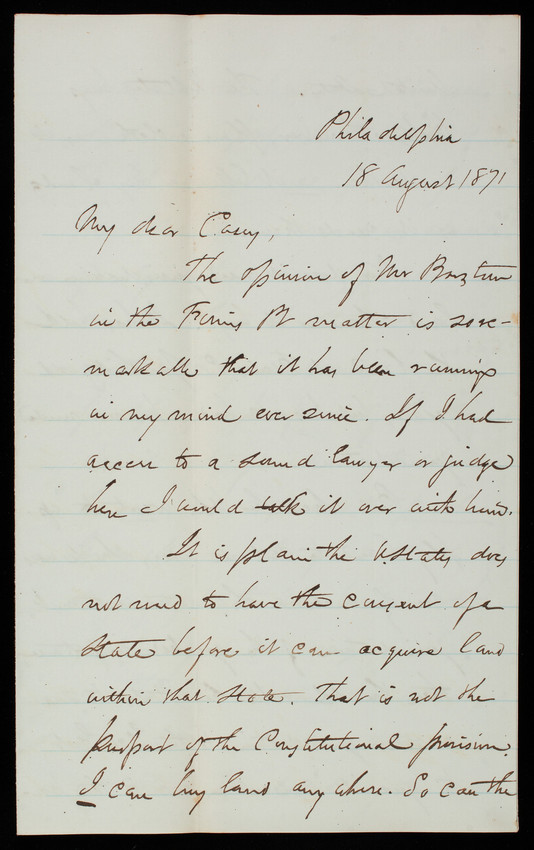 Philadelphia
18 August 1871
My dear Casey,
The opinion of Mr
in the Pt matter is so re-
markable that it has been running
in my mind ever since. If I had
access to a sound lawyer or judge
here I would talk it over with him.
It is plain the U.States does
not need to have the consent of a
State before it can acquire land
within that State. That is not the
purport of the Constitutional provision.
I can buy land anywhere. So can the